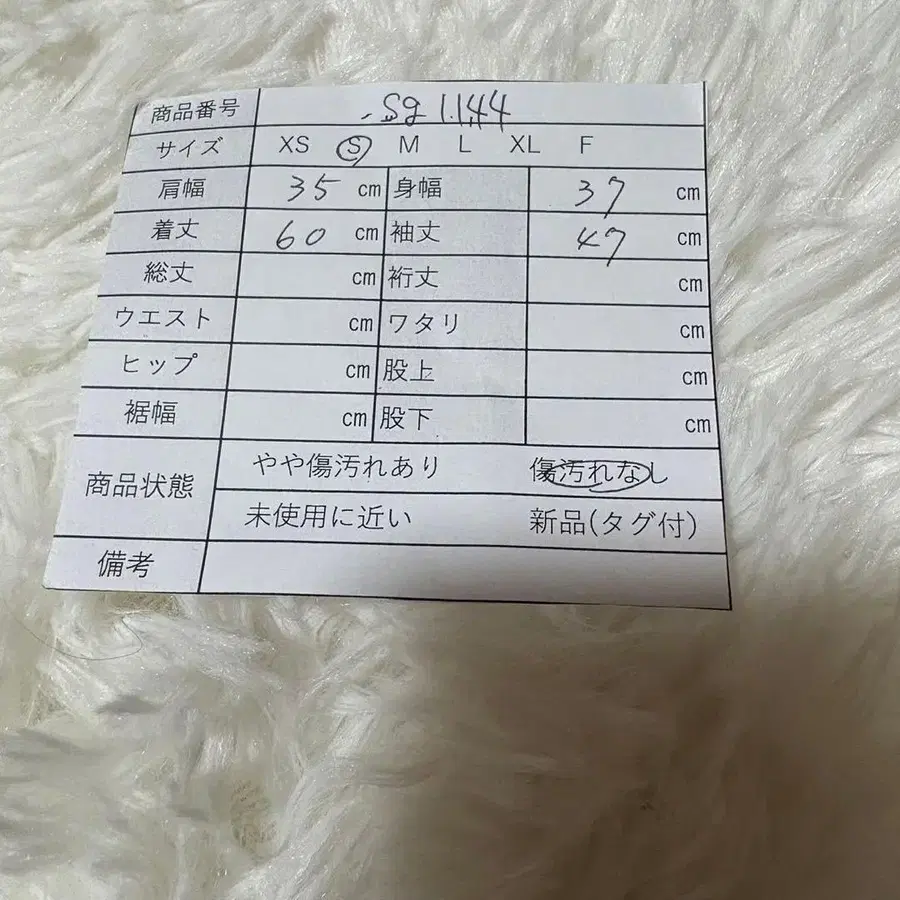 商品番号 Sg 1.144
サイズ XS S M L XL F
肩幅 35 cm 身幅 37 cm
着丈 60 cm 袖丈 47 cm
総丈 cm 裄丈 cm
ウエスト cm ワタリ cm
ヒップ cm 股上 cm
裾幅 cm 股下 cm
商品状態 やや傷汚れあり 傷汚れなし
未使用に近い 新品(タグ付)
備考